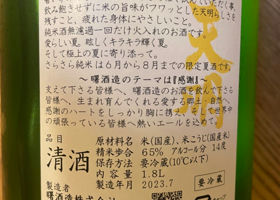 飲み飽きせずに米の旨味がフワッとした天明らし
残すこと、疲れた身体にやさしいこと。
純米酒無濾過一回だけ火入れのお酒です。
愛らしい夏。眩しくキラキラ輝く夏。
そして極上の夏に寄り添って。
さらさら純米は6月から8月までの限定夏酒です。
〜曙酒造のテーマは『感謝』〜
支えて下さる皆様へ、曙酒造のお酒を飲んで下さる
皆様へ、生まれ育んでくれる愛する郷土、自然へ、
感謝のハートをしっかり胸に携え、そして世界中の
頑張っている皆様へ熱いエールを込めて
品目
清酒
原材料名 米(国産)、米こうじ(国産米)
精米歩合 65% アルコール分 14度
保存方法 要冷蔵(10℃以下)
容量 1.8L
製造年月 2023.7
要冷蔵
製造者
曙酒造株式会社